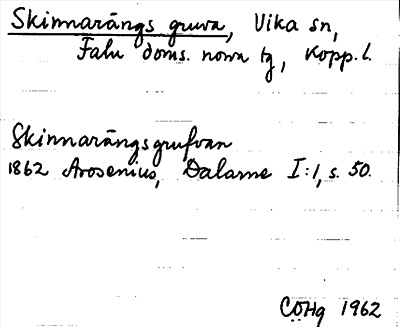 Skinnarängs gruva, Vika sn,
Falu doms. norra tg, Kopp. l.
Skinnarängsgrufvan
1862 Arosenius, Dalarne I:1, s. 50.
CÖHg 1962